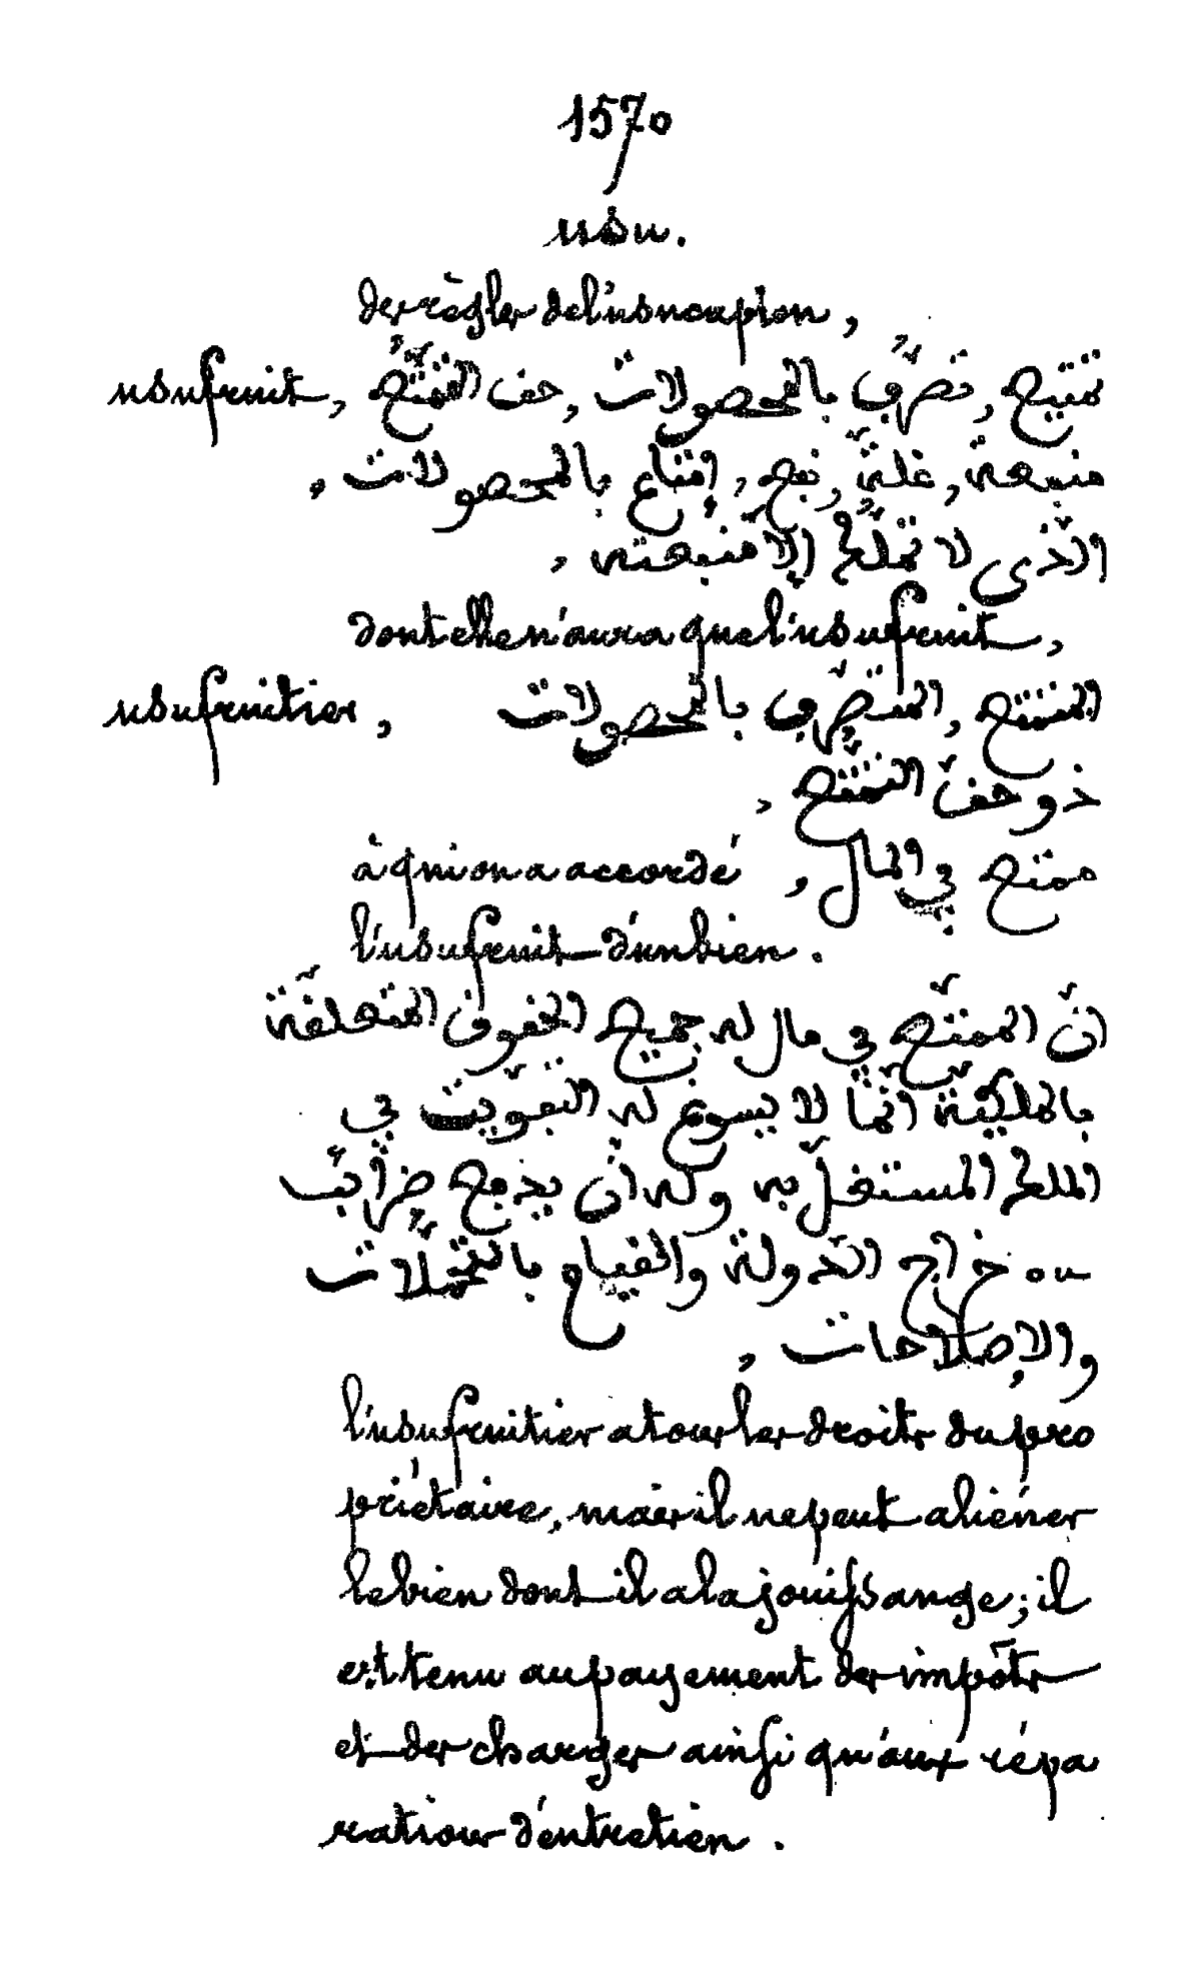 1570
usu.
des règles de l'usucapion,
usufruit, تمتيع, تصرّف بالمحصولات, حق التمتّع,
منبعة, غلّة, نبع, إقتاع بالمحصولات,
الّذى لا تملّك إلا منبعته,
dont elle n'aura que l'usufruit,
usufruitier, المتمتع, المتصرّف بالمحصولات
ذو حقّ التمتّع,
à qui on a accordé ممتع في المال,
l'usufruit d'un bien.
انّ الممتّع في مال له جميع الحقوق المتعلقة
بالملكيّة انّما لا يسوغ له التفويت في
الملك المستغلّ به وله ان يدفع ضرائب
ou خراج الدولة والقيام بالتحمّلات
والإصلاحات,
l'usufruitier a tous les droits du pro
priétaire, mais il ne peut aliéner
le bien dont il a la jouissange; il
est tenu au payement des impôts
et des charges ainsi qu'aux répa
rations d'entretien.